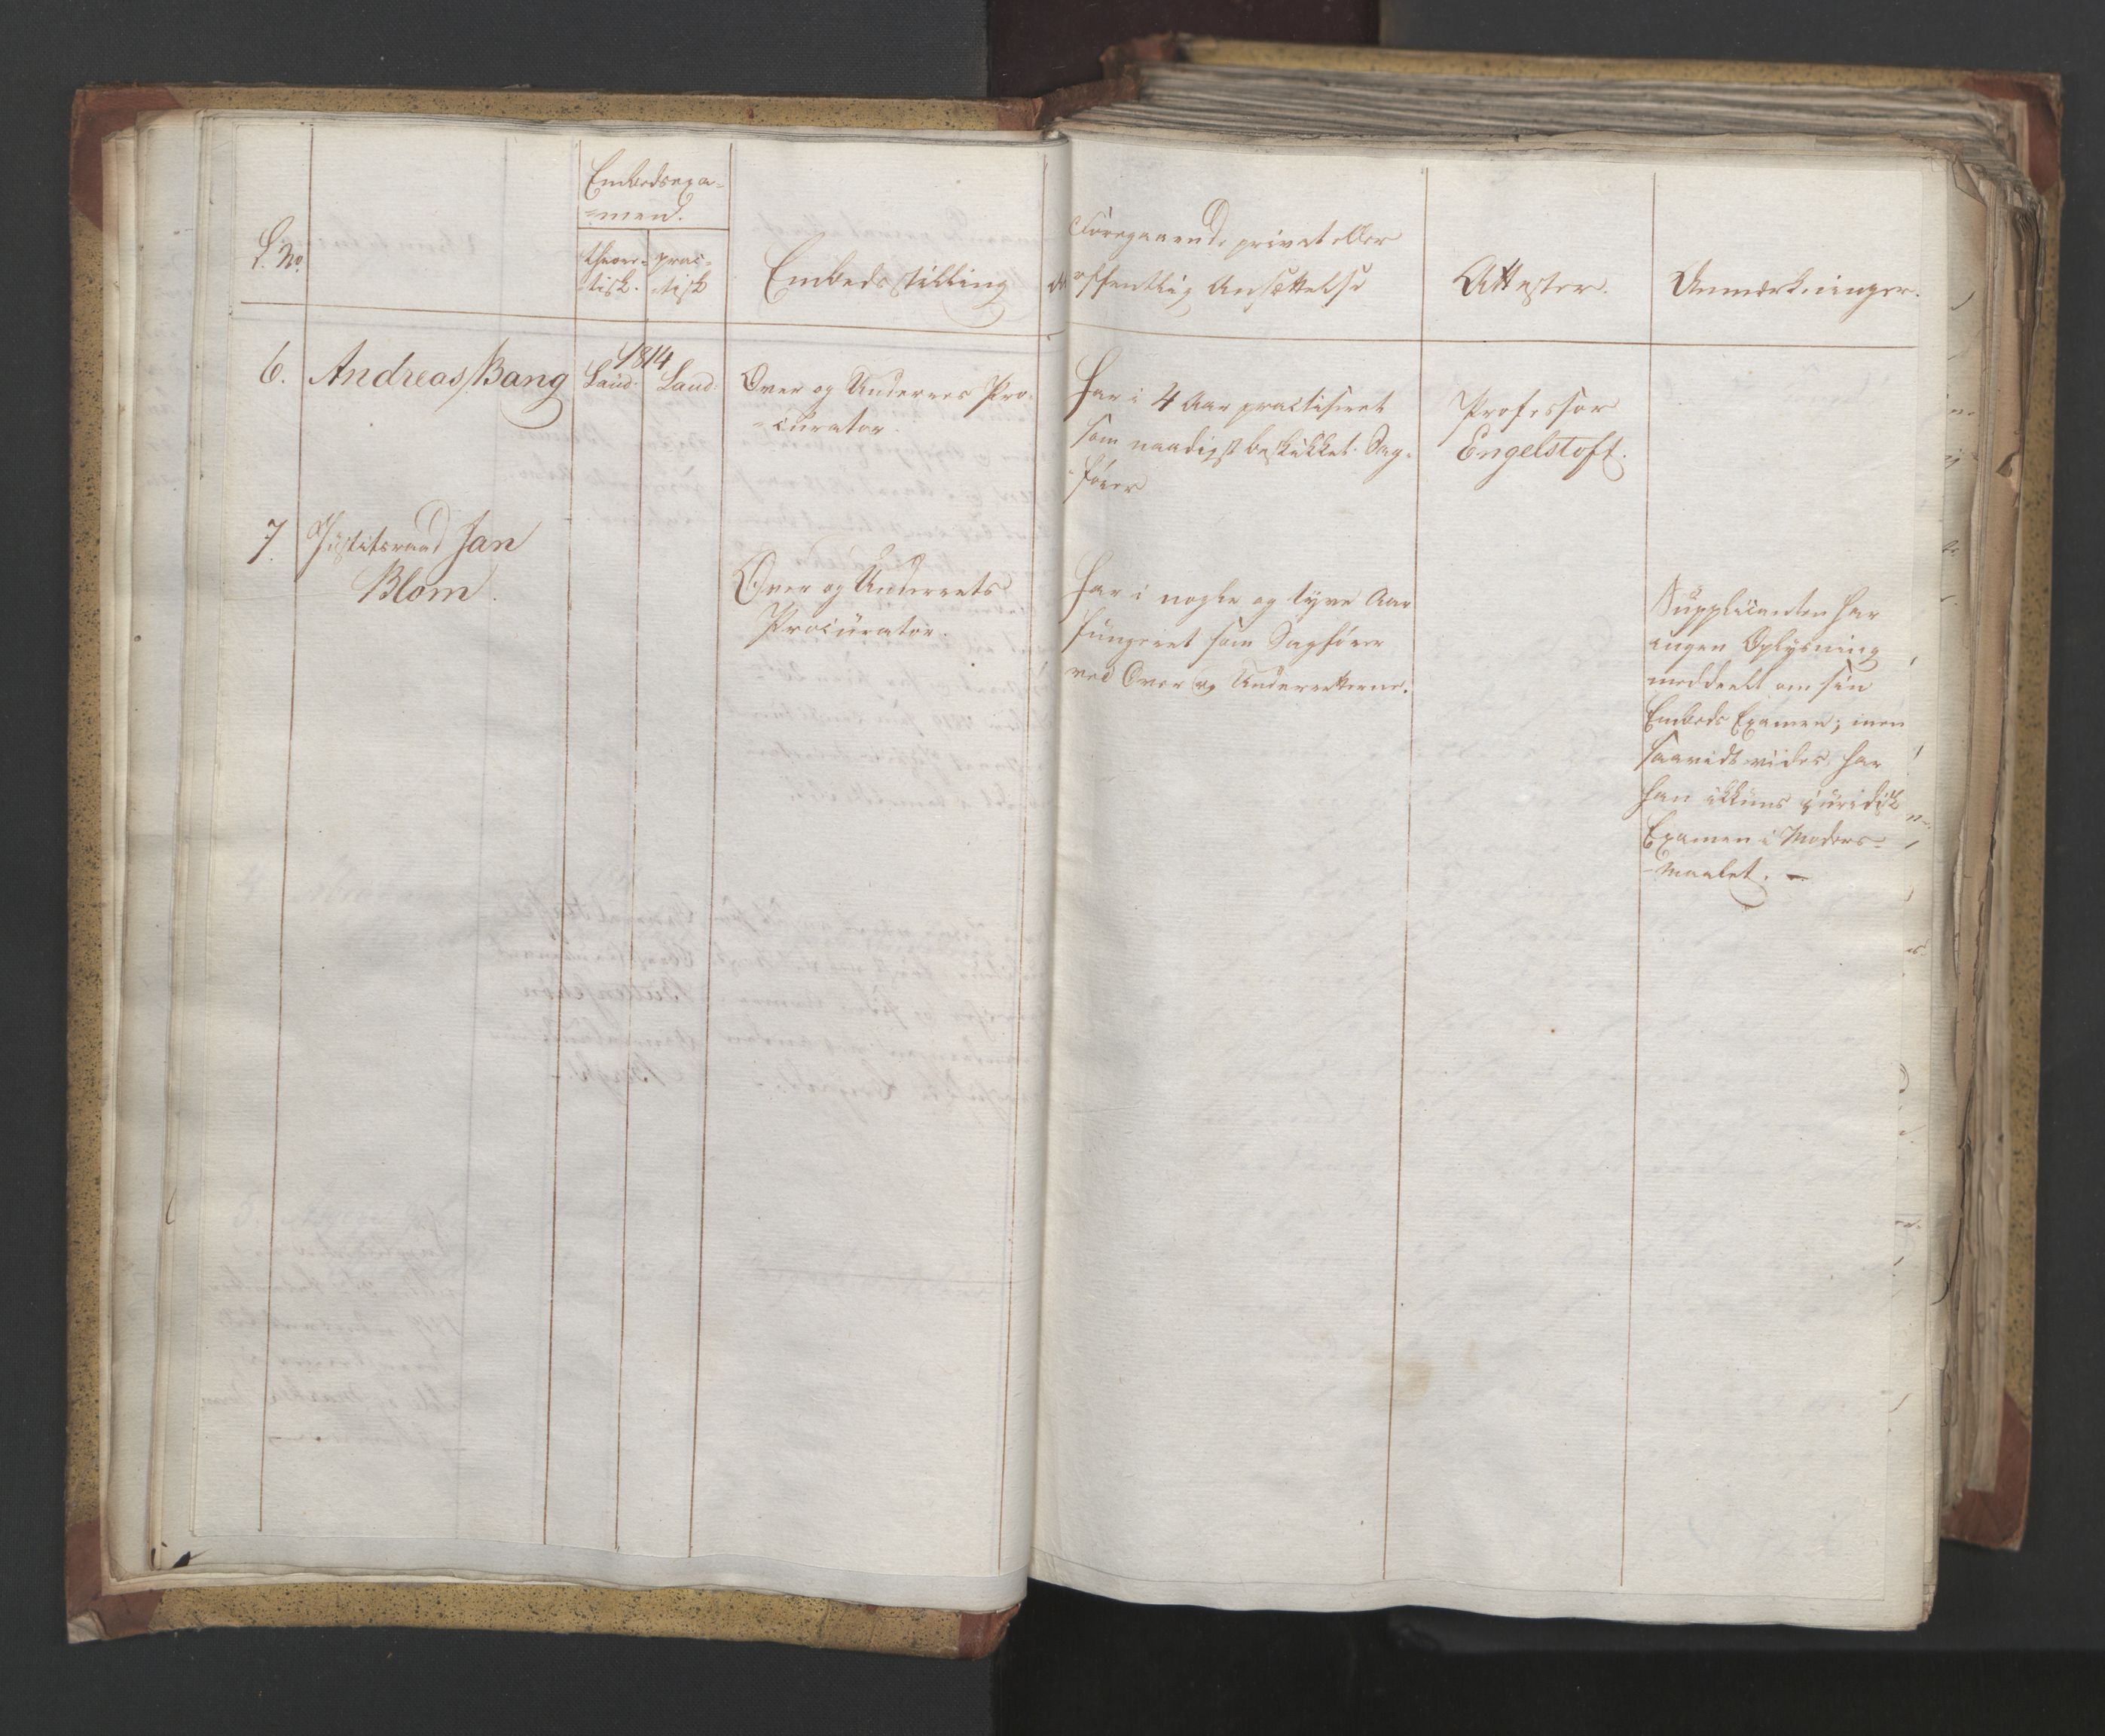 L. No.
Embedsexa-
-men.
theore-
tisk.
prac-
tisk
Embedsstilling
Foregaaende privat eller
offentlig Ansættelse
Attester.
Anmærkninger.
6. Andreas Bang
1814
Laud: Laud:
Over og Underrets Pro-
-curator.
Har i 4 Aar practiseret
som naadigst beskikket Sag-
fører
Professor
Engelstoft.
7. Justitsraad Jan
Blom.
Over og Underrets
Procurator.
Har i nogle og tyve Aar
fungeret som Sagfører
ved Over og Underretterne.
Supplicanten har
ingen Oplysning
meddeelt om sin
Embeds Examen; men
saavidt vides, har
han ikkuns juridisk
Examen i Moders-
-maalet. -